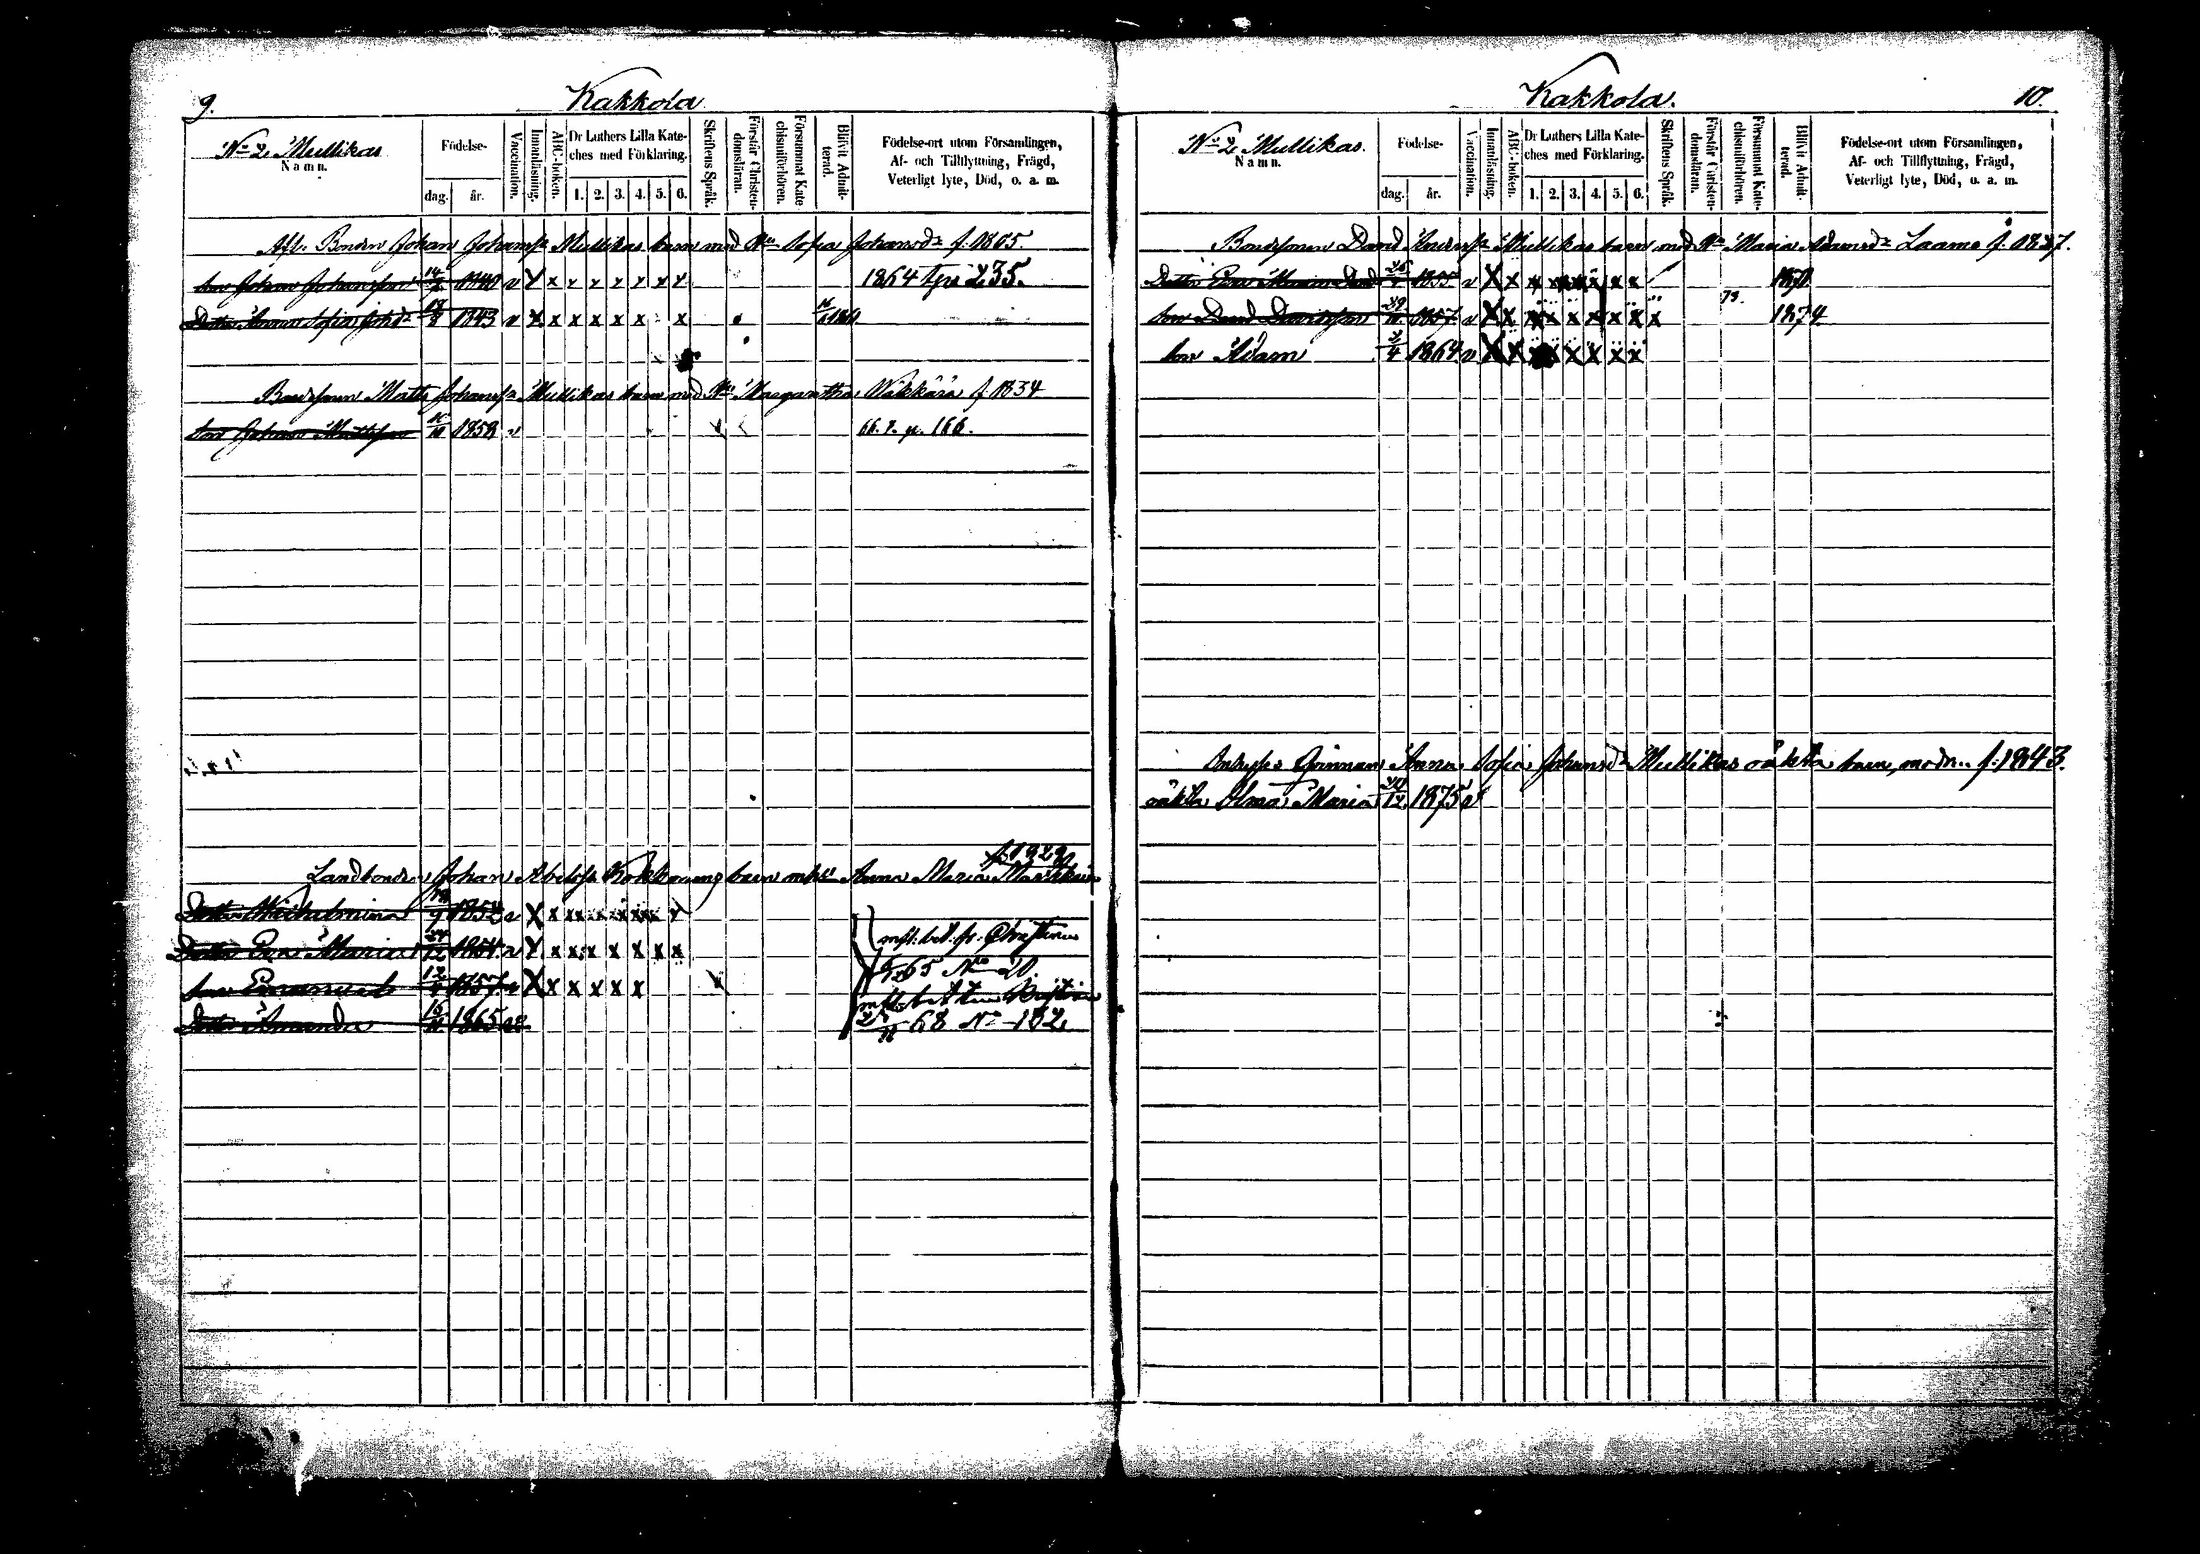 9.
Kakkola
No 2. Mullikas
Namn.
Födelse-
dag.
år.
Vaccination.
Innanläsning.
ABC-boken.
Dr Luthers Lilla Kate-
ches med Förklaring.
1. 2. 3. 4. 5. 6.
Skriftens Språk.
Förstår Christen-
domsläran.
Försummat Kate-
chismiförhören.
Blifvit Admit-
terad.
Födelse-ort utom Församlingen,
Af- och Tillflyttning, Frägd,
Veterligt lyte, Död, o. a. m.
Afl. Bonden Johan Johansson Mullikas barn med Sofia Johansdr f. 1805.
Son Johan Johansson 14 1840 v x x x x x x x x 1864 235.
Dottr Anna Sofia Johdr 8 1843 v x x x x x x x
Bondesonen Matts Johansson Mullikas barn med Margaretha Näkkärä f 1834
Son Johan Mattsson 1858 v 66. p. 166.
f. 1829
Landbonden Johan Abelss Kokkarens barn m h Anna Maria
Dottr Wilhelmina 9 1852 v x x x x x x x x
Dottr Eva Maria 24/12 1854 v x x x x x x x x
Son Emanuel 12 1857 v x x x x x x
Dottr Amanda 1865
mfl. bet. fr. Christina
65 No 20.
mfl. bet
68 No 182
Kakkola.
10.
No 2 Mullikas.
Namn.
Födelse-
dag.
år.
Vaccination.
Innanläsning.
ABC-boken.
Dr Luthers Lilla Kate-
ches med Förklaring.
1. 2. 3. 4. 5. 6.
Skriftens Språk.
Förstår Christen-
domsläran.
Försummat Kate-
chismiförhören.
Blifvit Admit-
terad.
Födelse-ort utom Församlingen,
Af- och Tillflyttning, Frägd,
Veterligt lyte, Död, o. a. m.
Bondesonen David Mullikas barn med Maria Adamsdr Laame f. 1827.
Dottr Eva Maria 1855 v x x x x x x x x
Son David Davidsson 29/10 1857 v x x x x x x x x x 73. 1874
Son Adam 2/4 1864 v x x x x x x x x
Qvinnan Anna Sofia Johansdr Mullikas oäkta barn, modr. f. 1843.
oäkta Olma Maria 1875 v